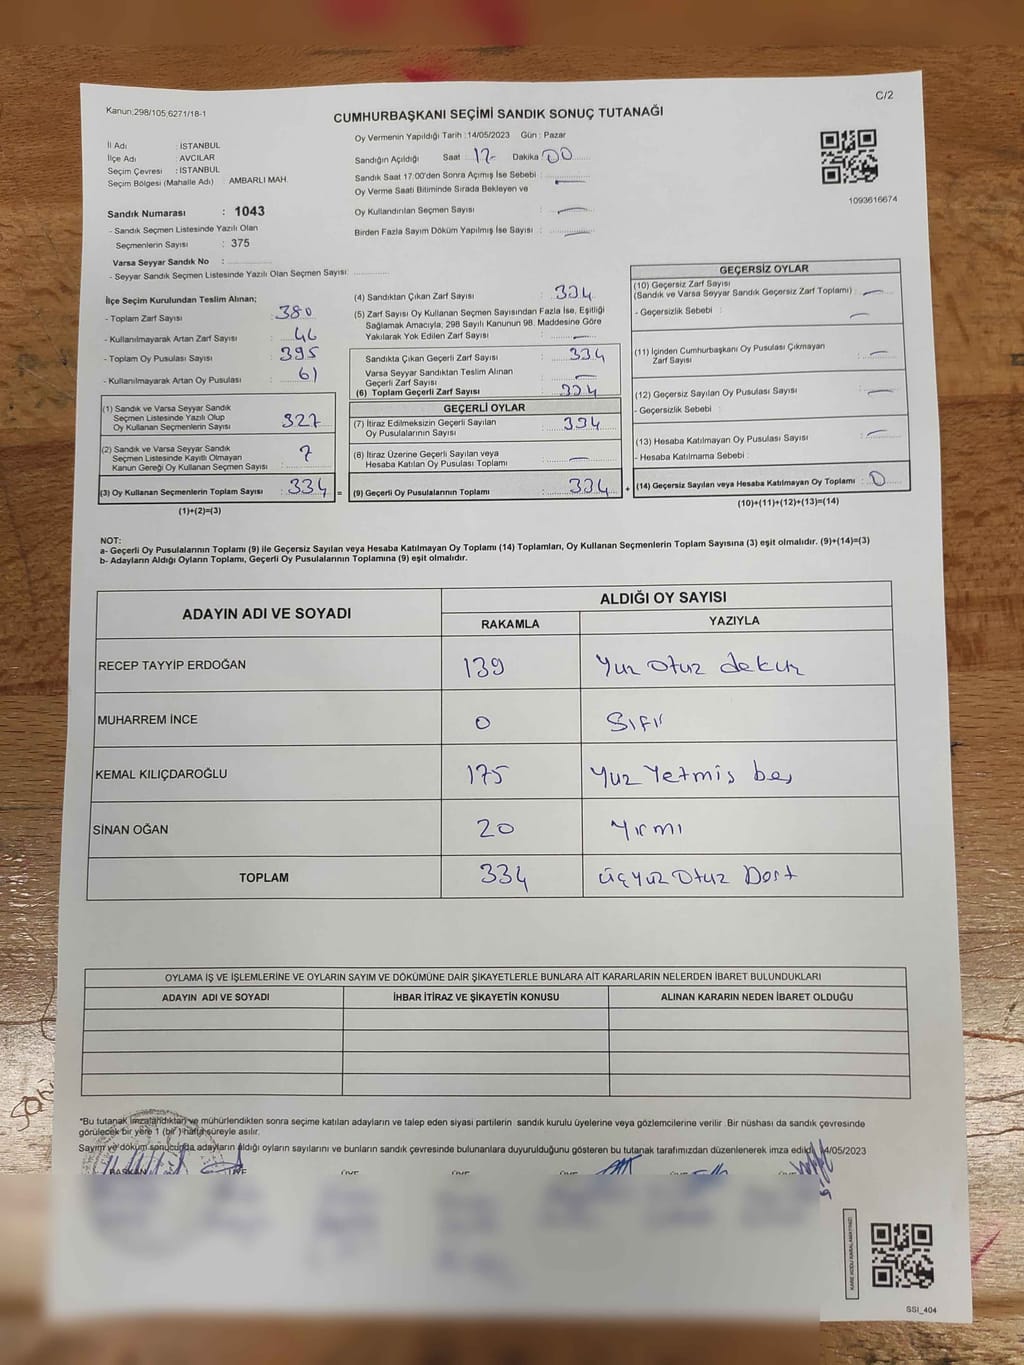 Kanun:298/105;6271/18-1
C/2
CUMHURBAŞKANI SEÇİMİ SANDIK SONUÇ TUTANAĞI
İl Adı : İSTANBUL
İlçe Adı : AVCILAR
Seçim Çevresi : İSTANBUL
Seçim Bölgesi (Mahalle Adı) : AMBARLI MAH.
Oy Vermenin Yapıldığı Tarih :14/05/2023 Gün : Pazar
Sandığın Açıldığı Saat : 17- Dakika 00
Sandık Saat 17:00'den Sonra Açımış İse Sebebi :
Oy Verme Saati Bitiminde Sırada Bekleyen ve
Oy Kullandırılan Seçmen Sayısı : —
Birden Fazla Sayım Döküm Yapılmış İse Sayısı : —
1093616674
Sandık Numarası : 1043
- Sandık Seçmen Listesinde Yazılı Olan
Seçmenlerin Sayısı : 375
Varsa Seyyar Sandık No :
- Seyyar Sandık Seçmen Listesinde Yazılı Olan Seçmen Sayısı:
İlçe Seçim Kurulundan Teslim Alınan;
- Toplam Zarf Sayısı : 380
- Kullanılmayarak Artan Zarf Sayısı : 46
- Toplam Oy Pusulası Sayısı : 395
- Kullanılmayarak Artan Oy Pusulası : 61
(1) Sandık ve Varsa Seyyar Sandık
Seçmen Listesinde Yazılı Olup
Oy Kullanan Seçmenlerin Sayısı : 327
(2) Sandık ve Varsa Seyyar Sandık
Seçmen Listesinde Kayıtlı Olmayan
Kanun Gereği Oy Kullanan Seçmen Sayısı : 7
(3) Oy Kullanan Seçmenlerin Toplam Sayısı : 334 =
(1)+(2)=(3)
(4) Sandıktan Çıkan Zarf Sayısı : 334
(5) Zarf Sayısı Oy Kullanan Seçmen Sayısından Fazla İse, Eşitliği
Sağlamak Amacıyla, 298 Sayılı Kanunun 98. Maddesine Göre
Yakılarak Yok Edilen Zarf Sayısı : —
Sandıkta Çıkan Geçerli Zarf Sayısı : 334
Varsa Seyyar Sandıktan Teslim Alınan
Geçerli Zarf Sayısı : —
(6) Toplam Geçerli Zarf Sayısı : 334
GEÇERLİ OYLAR
(7) İtiraz Edilmeksizin Geçerli Sayılan
Oy Pusulalarının Sayısı : 334
(8) İtiraz Üzerine Geçerli Sayılan veya
Hesaba Katılan Oy Pusulası Toplamı : —
(9) Geçerli Oy Pusulalarının Toplamı : 334 +
GEÇERSİZ OYLAR
(10) Geçersiz Zarf Sayısı
(Sandık ve Varsa Seyyar Sandık Geçersiz Zarf Toplamı) : —
- Geçersizlik Sebebi :
(11) İçinden Cumhurbaşkanı Oy Pusulası Çıkmayan
Zarf Sayısı : —
(12) Geçersiz Sayılan Oy Pusulası Sayısı : —
- Geçersizlik Sebebi :
(13) Hesaba Katılmayan Oy Pusulası Sayısı : —
- Hesaba Katılmama Sebebi :
(14) Geçersiz Sayılan veya Hesaba Katılmayan Oy Toplamı : 0
(10)+(11)+(12)+(13)=(14)
NOT:
a- Geçerli Oy Pusulalarının Toplamı (9) ile Geçersiz Sayılan veya Hesaba Katılmayan Oy Toplamı (14) Toplamları, Oy Kullanan Seçmenlerin Toplam Sayısına (3) eşit olmalıdır. (9)+(14)=(3)
b- Adayların Aldığı Oyların Toplamı, Geçerli Oy Pusulalarının Toplamına (9) eşit olmalıdır.
ADAYIN ADI VE SOYADI
ALDIĞI OY SAYISI
RAKAMLA YAZIYLA
RECEP TAYYİP ERDOĞAN 139 Yuz Otuz dokuz
MUHARREM İNCE 0 Sıfır
KEMAL KILIÇDAROĞLU 175 Yuz Yetmiş beş
SİNAN OĞAN 20 Yırmı
TOPLAM 334 üçyuz Otuz Dort
OYLAMA İŞ VE İŞLEMLERİNE VE OYLARIN SAYIM VE DÖKÜMÜNE DAİR ŞİKAYETLERLE BUNLARA AİT KARARLARIN NELERDEN İBARET BULUNDUKLARI
ADAYIN ADI VE SOYADI İHBAR İTİRAZ VE ŞİKAYETİN KONUSU ALINAN KARARIN NEDEN İBARET OLDUĞU
*Bu tutanak imzalandıktan ve mühürlendikten sonra seçime katılan adayların ve talep eden siyasi partilerin sandık kurulu üyelerine veya gözlemcilerine verilir. Bir nüshası da sandık çevresinde
görülecek bir yere 1 (bir) hafta süreyle asılır.
Sayım ve döküm sonucunda adayların aldığı oyların sayılarını ve bunların sandık çevresinde bulunanlara duyurulduğunu gösteren bu tutanak tarafımızdan düzenlenerek imza edildi. 14/05/2023
BAŞKAN ÜYE ÜYE ÜYE
KARE KODU KARALAMAYINIZ!
SSI_404